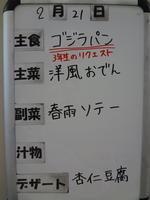 2月21日
主食 ゴジラパン
3年生のリクエスト
主菜 洋風おでん
副菜 春雨ソテー
汁物
デザート 杏仁豆腐